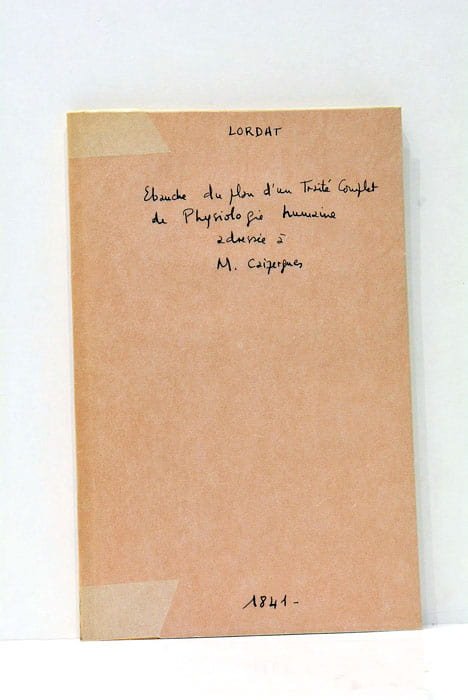 LORDAT
Ebauche du plan d'un Traité Complet
de Physiologie humaine
adressée à
M. Caizergues
1841-